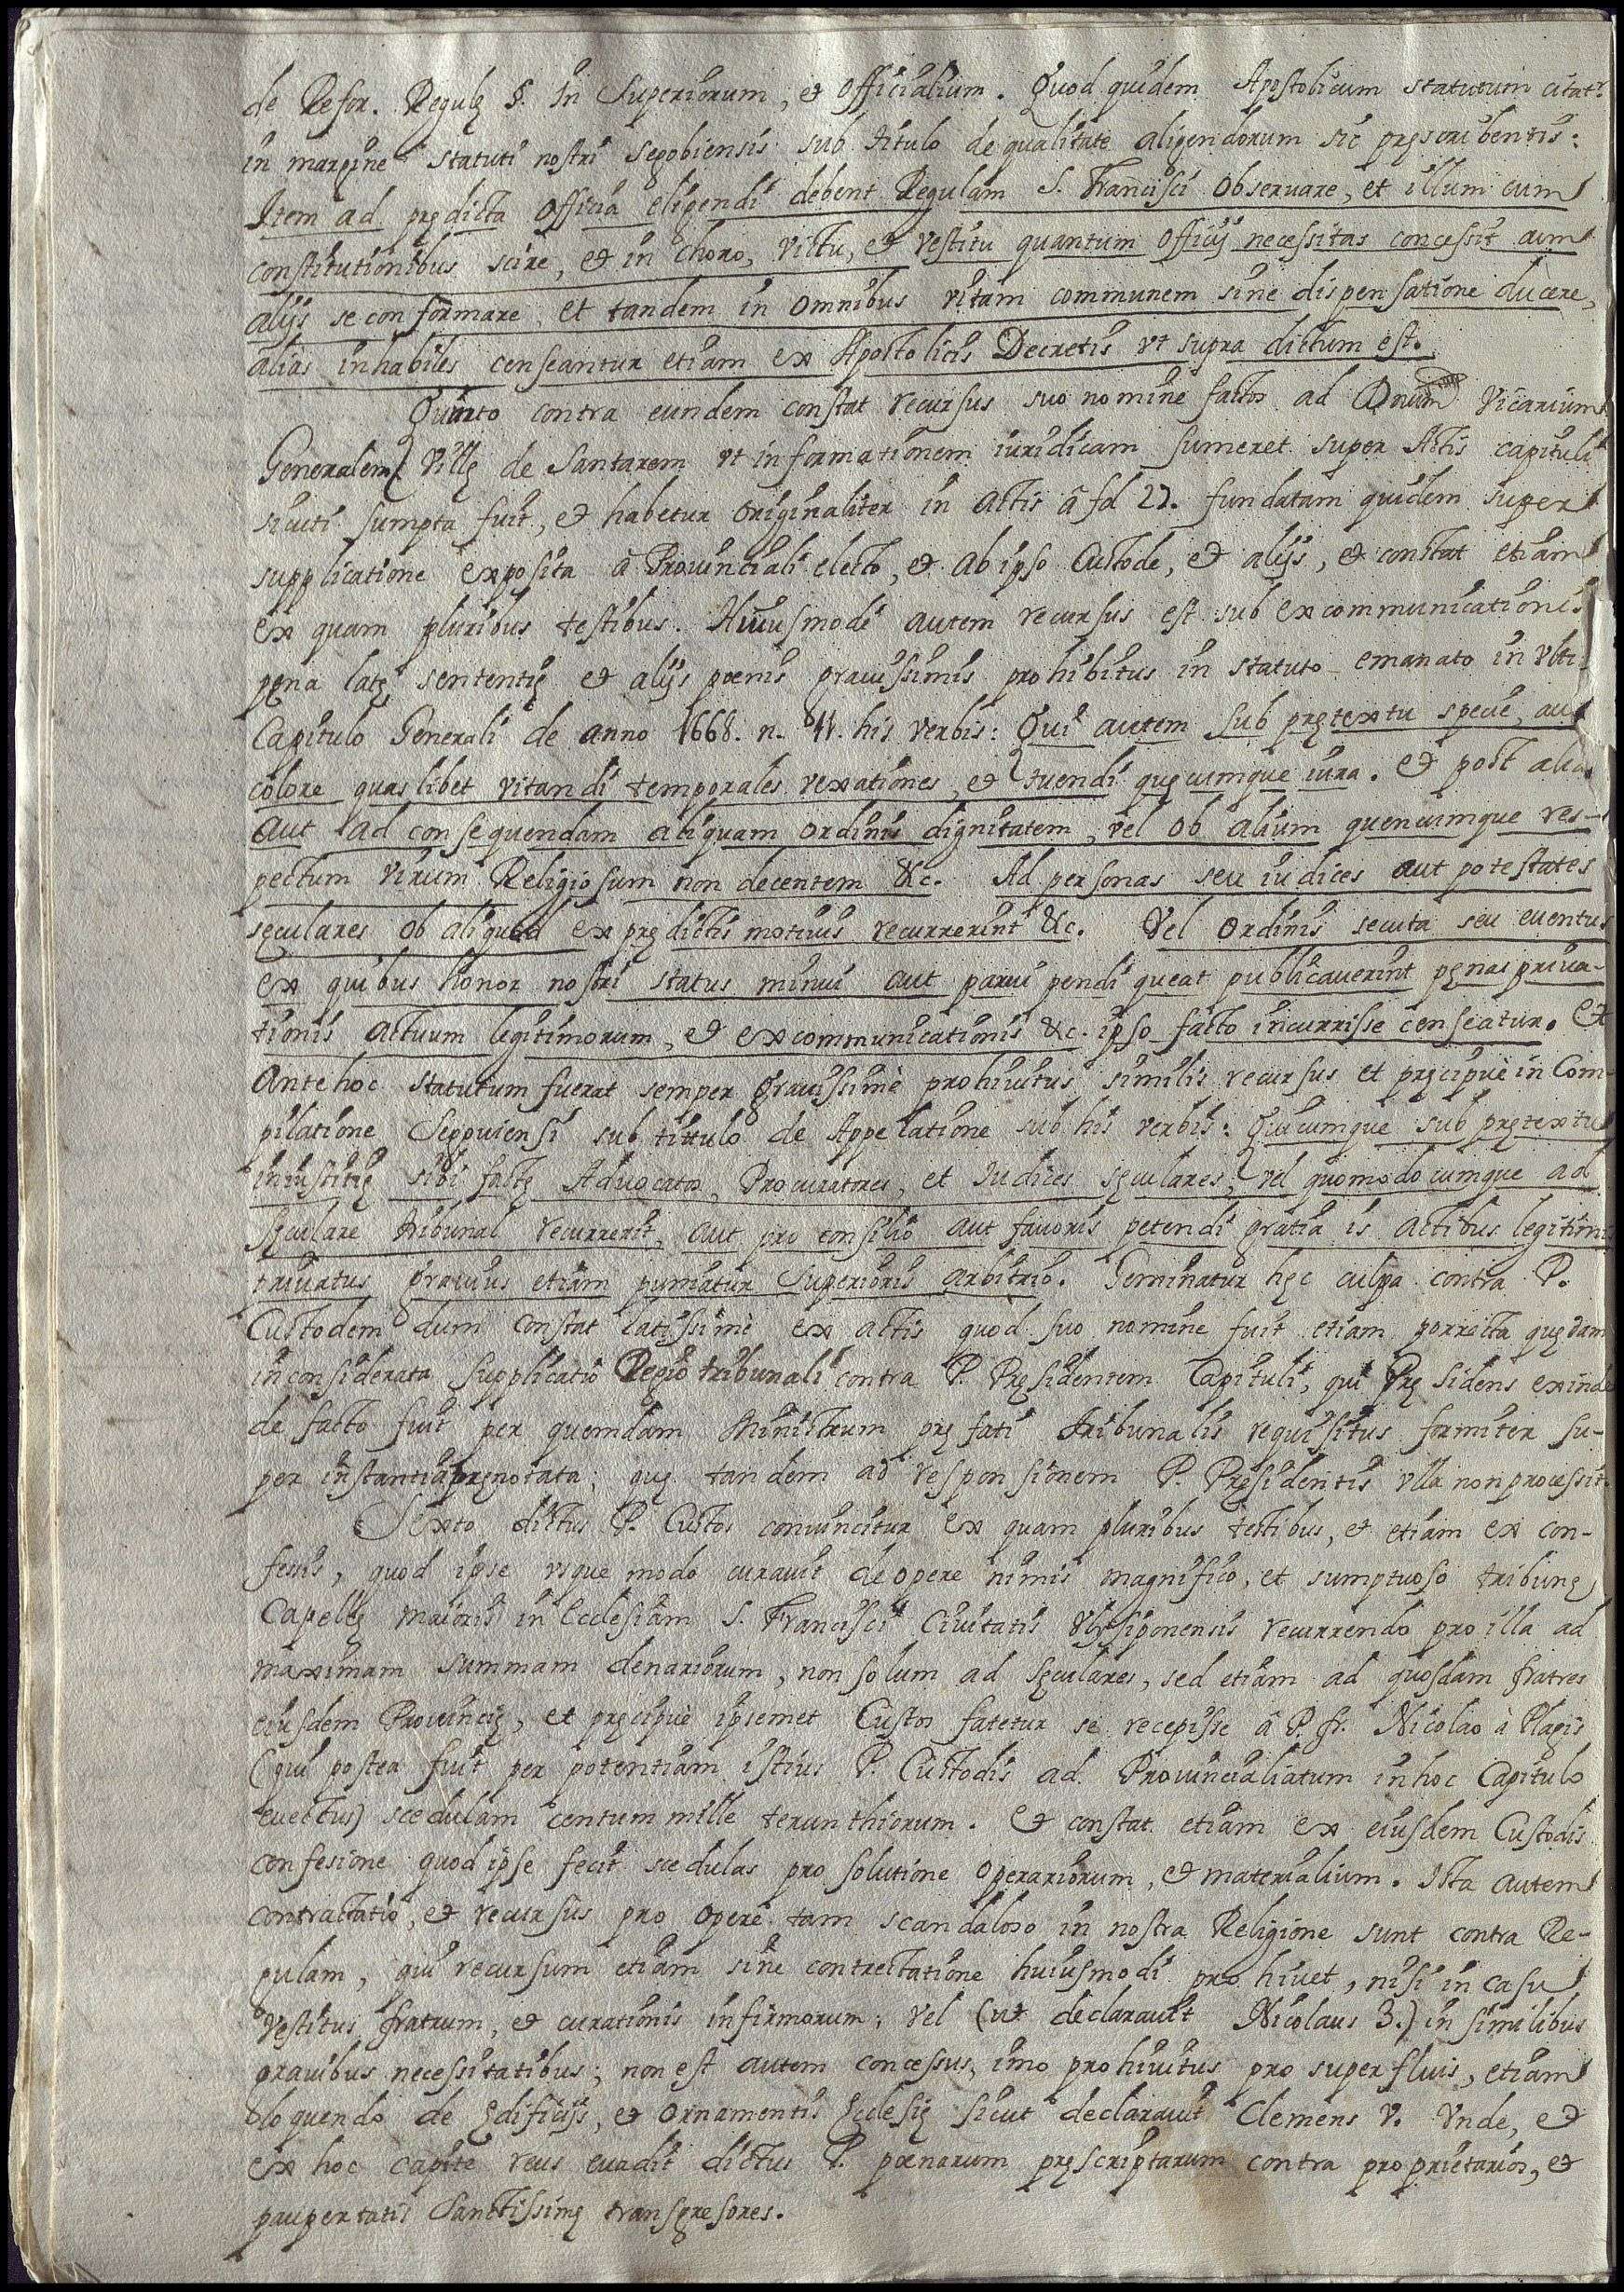 de Refor. Regulę §. In Superiorum, et Officialium. Quod quidem Apostolicum statutum citatr.
in margine statuti nostri Segobiensis sub titulo de qualitate aligendorum sic pręscribentis:
Item ad prędicta officia eligendi debent Regulam S. Francisci observare, et illum cum
constitutionibus scire, et in choro, victu, et vestitu quantum officij necessitas concessit cum
alijs se conformare, et tandem in omnibus vitam communem sine dispensatione ducere,
alias inhabiles censeantur etiam ex Apostolicis Decretis vt supra dictum est.
Quinto contra eundem constat recursus suo nomine factos ad Dnum Vicarium
Generalem Villę de Santarem vt informationem iuridicam sumeret super Actis capituli
sicuti sumpta fuit, et habetur originaliter in actis â fol 22. fundatam quidem super
supplicatione exposita â Provintiali electo, et ab ipso Custode, et alijs, et constat etiam
ex quam pluribus testibus. Huiusmodi autem recursus est sub excommunicationis
pęna latę sententię et alijs poenis gravissimis prohibitus in statuto emanato in Vlti.
Capitulo Generali de anno 1668. n. 41. his verbis: Qui autem sub prętextu specie, aut
colore quaslibet vitandi temporales vexationes, et tuendi quęcumque iura. et post alia
aut ad consequendam aliquam ordinis dignitatem, vel ob alium quencumque res-
pectum virum Religiosum non decentem &c. Ad personas seu iudices aut potestates
sęculares ob aliquod ex prędictis motivis recurrerint &c. Vel ordinis secuta seu eventus
ex quibus honor nostri status minui aut parvi pendi queat publicaverint pęnas priva-
tionis actuum legitimorum, et excommunicationis &c. ipso facto incurrisse censeatur. et
Ante hoc statutum fuerat semper gravissimè prohiuitus similis recursus et pręcipuè in Com-
pilatione Segouiensi sub tittulo de Appelatione sub his verbis: Quicumque sub prętextu
iniustitię sibi factę Advocatos, Procuratores, et Iudices sęculares, vel quomodocumque ad
Sęculare tribunal recurrerit, aut pro consilio aut favoris petendi gratia is actibus legitimis
privatus gravius etiam puniatur Superioris arbitrio. Geminatur hęc culpa contra P.
Custodem dum constat latissimè ex actis quod suo nomine fuit etiam porrecta quędam
inconsiderata supplicatio Regio tribunali contra P. Pręsidentem Capituli, qui Pręsidens exinde
de facto fuit per quemdam Ministrum pręfati tribunalis requisitus formiter su-
per instantia pręnotata; quę tandem ad responsionem P. Pręsidentis vlla non processit.
Sexto dictus P. Custos convincitur ex quam pluribus testibus, et etiam ex con-
fessis, quod ipse vsque modo curavit de opere nimis magnifico, et sumptuoso tribunę
Capellę maioris in Ecclesiam S. Francisci Civitatis Vlysiponensis recurrendo pro illa ad
maximam summam denariorum, non solum ad sęculares, sed etiam ad quosdam fratres
eiusdem Provincię, et pręcipuè ipsemet Custos fatetur se recepisse â P. fr. Nicolao à Plagis
(qui postea fuit per potentiam istius P. Custodis ad Provincialiatum in hoc Capitulo
evectus) scedulam centum mille terunthiorum. et constat etiam ex eiusdem Custodis
confesione quod ipse fecit scedulas pro solutione operariorum, et materialium. Ista autem
contractatio, et recursus pro opere tam scandaloso in nostra Religione sunt contra Re-
gulam, qui recursum etiam sine contrectatione huiusmodi prohivet, nisi in casu
vestitus fratrum, et curationis infirmorum; vel (ut declaravit Nicolaus 3.) in similibus
gravibus necessitatibus; non est autem concessus, imo prohiuitus pro superfluis, etiam
loquendo de ędificijs, et ornamentis Ęclesię sicut declaravit Clemens V. Vnde, et
ex hoc capite reus evadit dictus P. poenarum pręscriptarum contra proprietarios, et
paupertatis Sanctissimę transgresores.